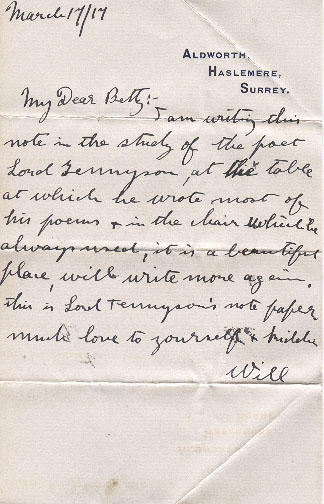 March 17/17
ALDWORTH,
HASLEMERE,
SURREY.
My Dear Betty:-
I am writing this
note in the study of the poet
Lord Tennyson, at the table
at which he wrote most of
his poems & in the chair which he
always used, it is a beautiful
place, will write more again.
this is Lord Tennyson's note paper
much love to yourself &
Will